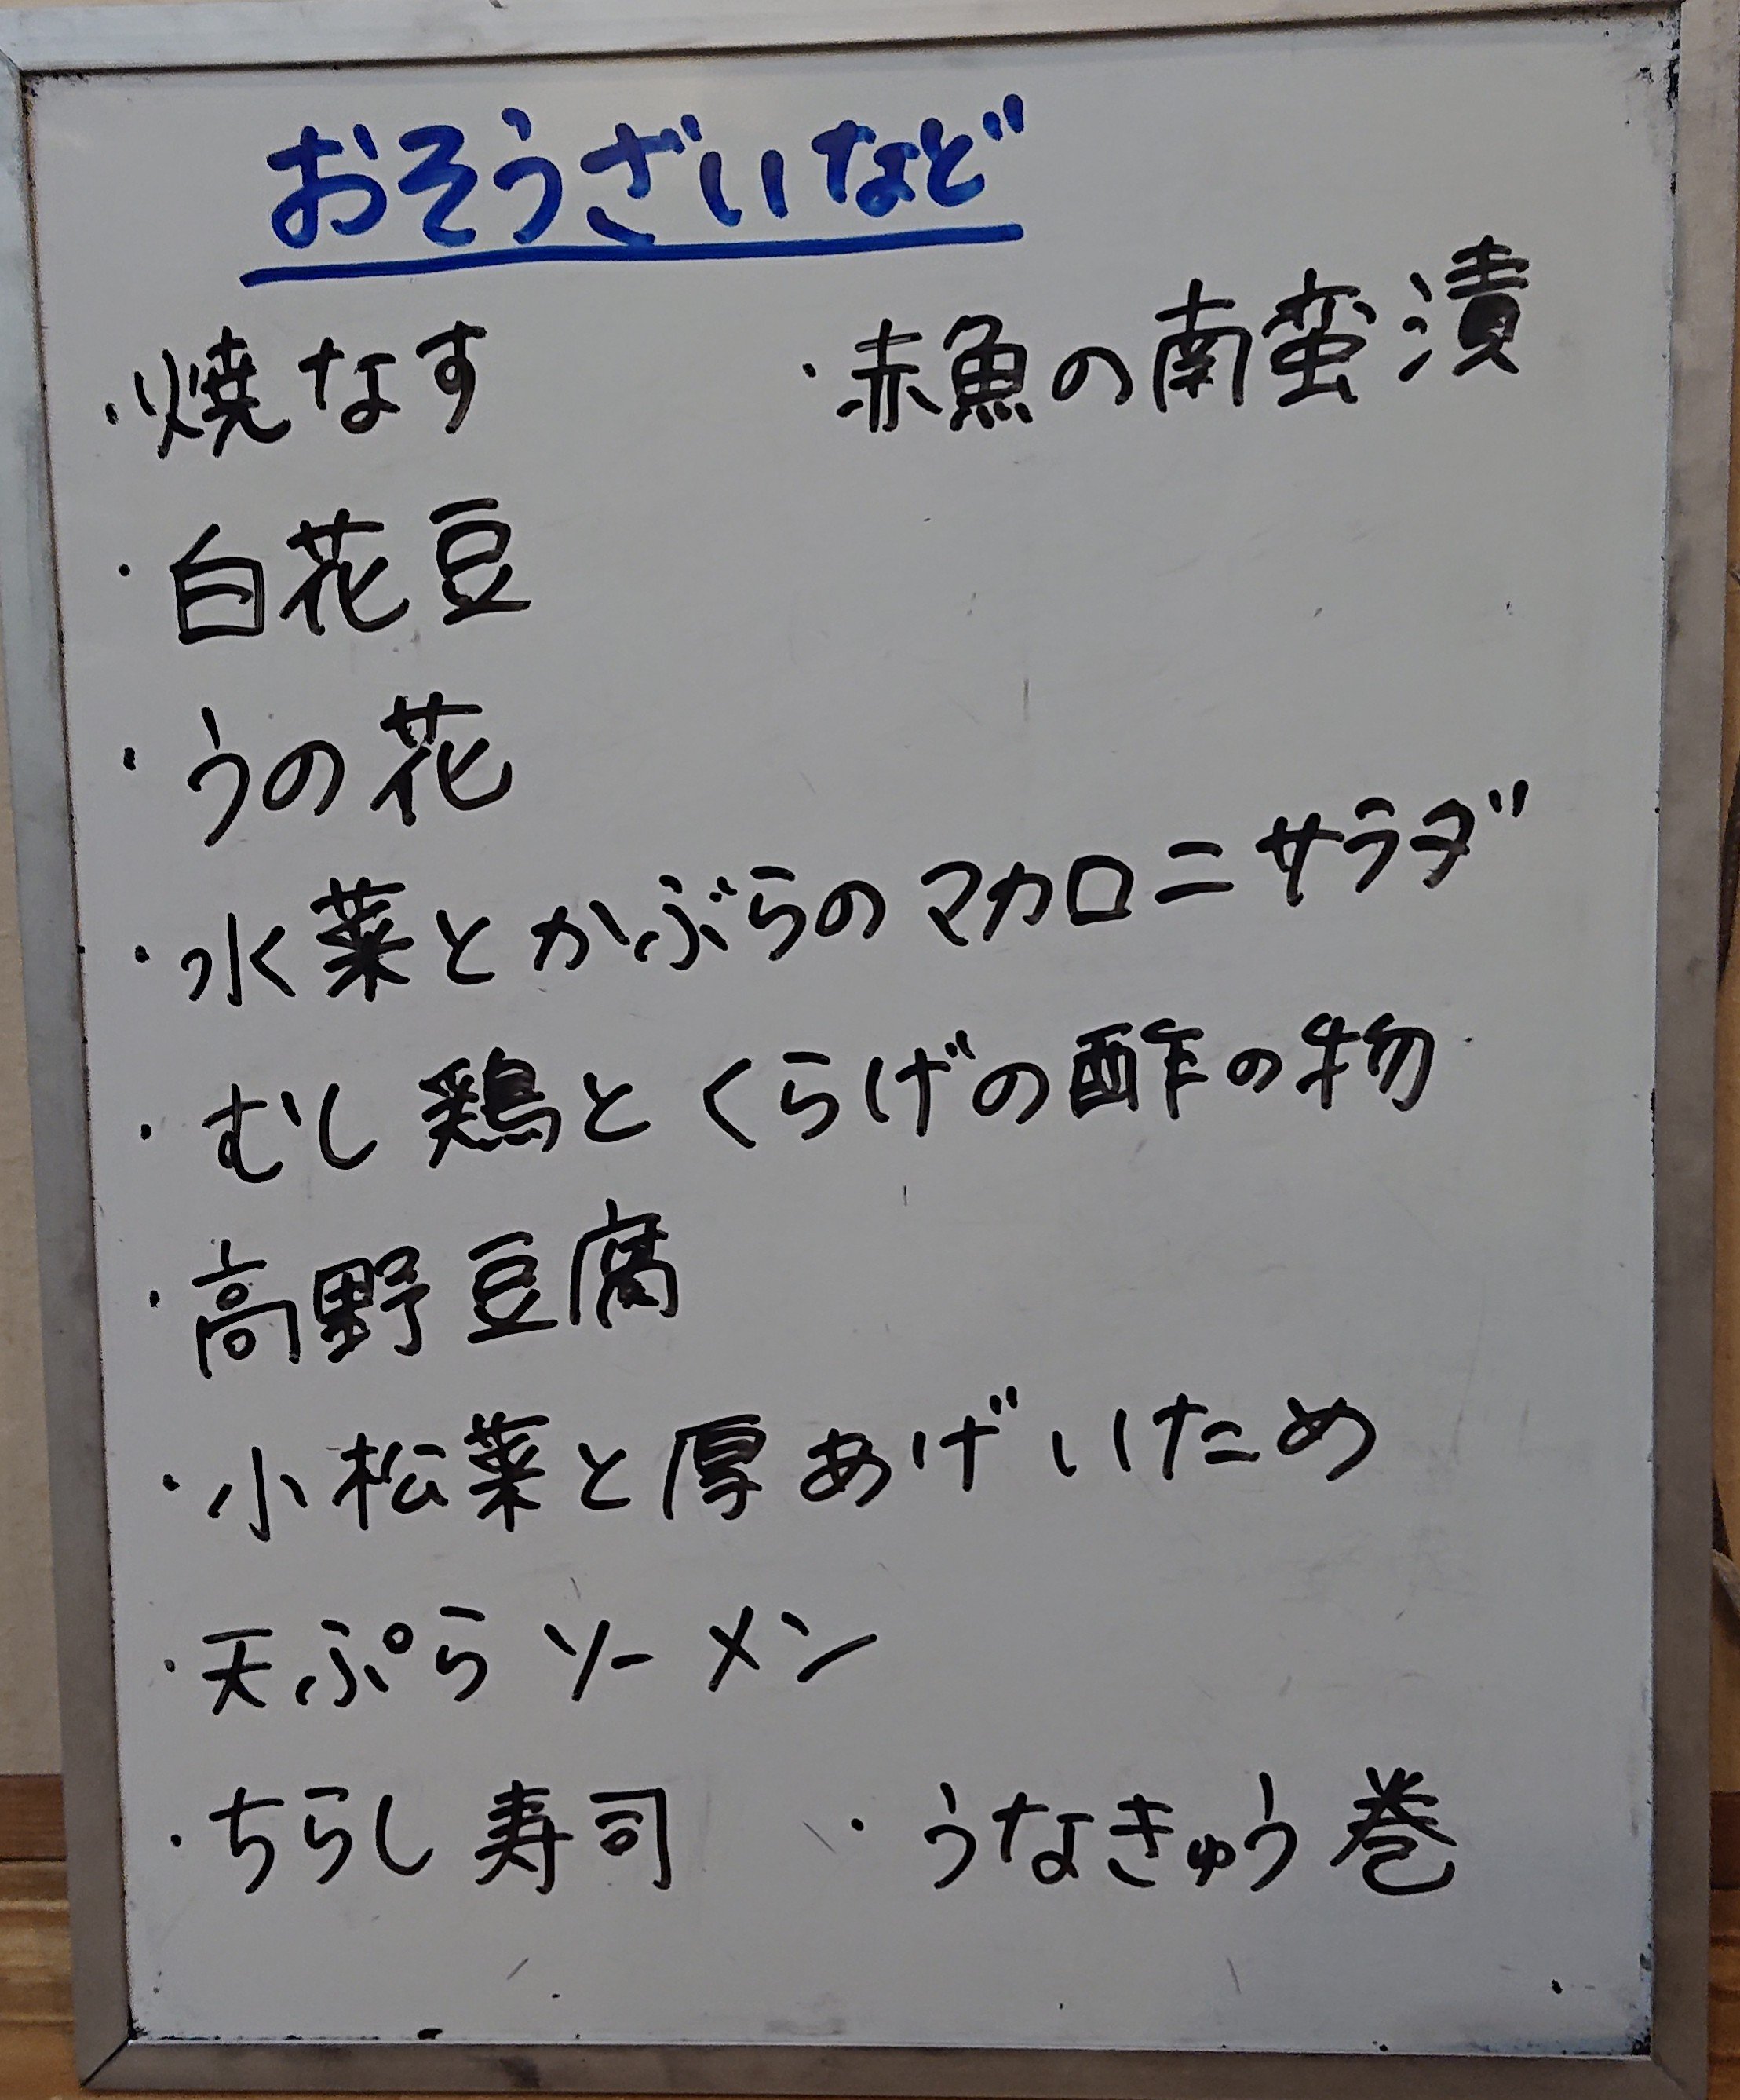 おそうざいなど
・焼なす ・赤魚の南蛮漬
・白花豆
・うの花
・水菜とかぶらのマカロニサラダ
・むし鶏とくらげの酢の物
・高野豆腐
・小松菜と厚あげいため
・天ぷらソーメン
・ちらし寿司 ・うなきゅう巻